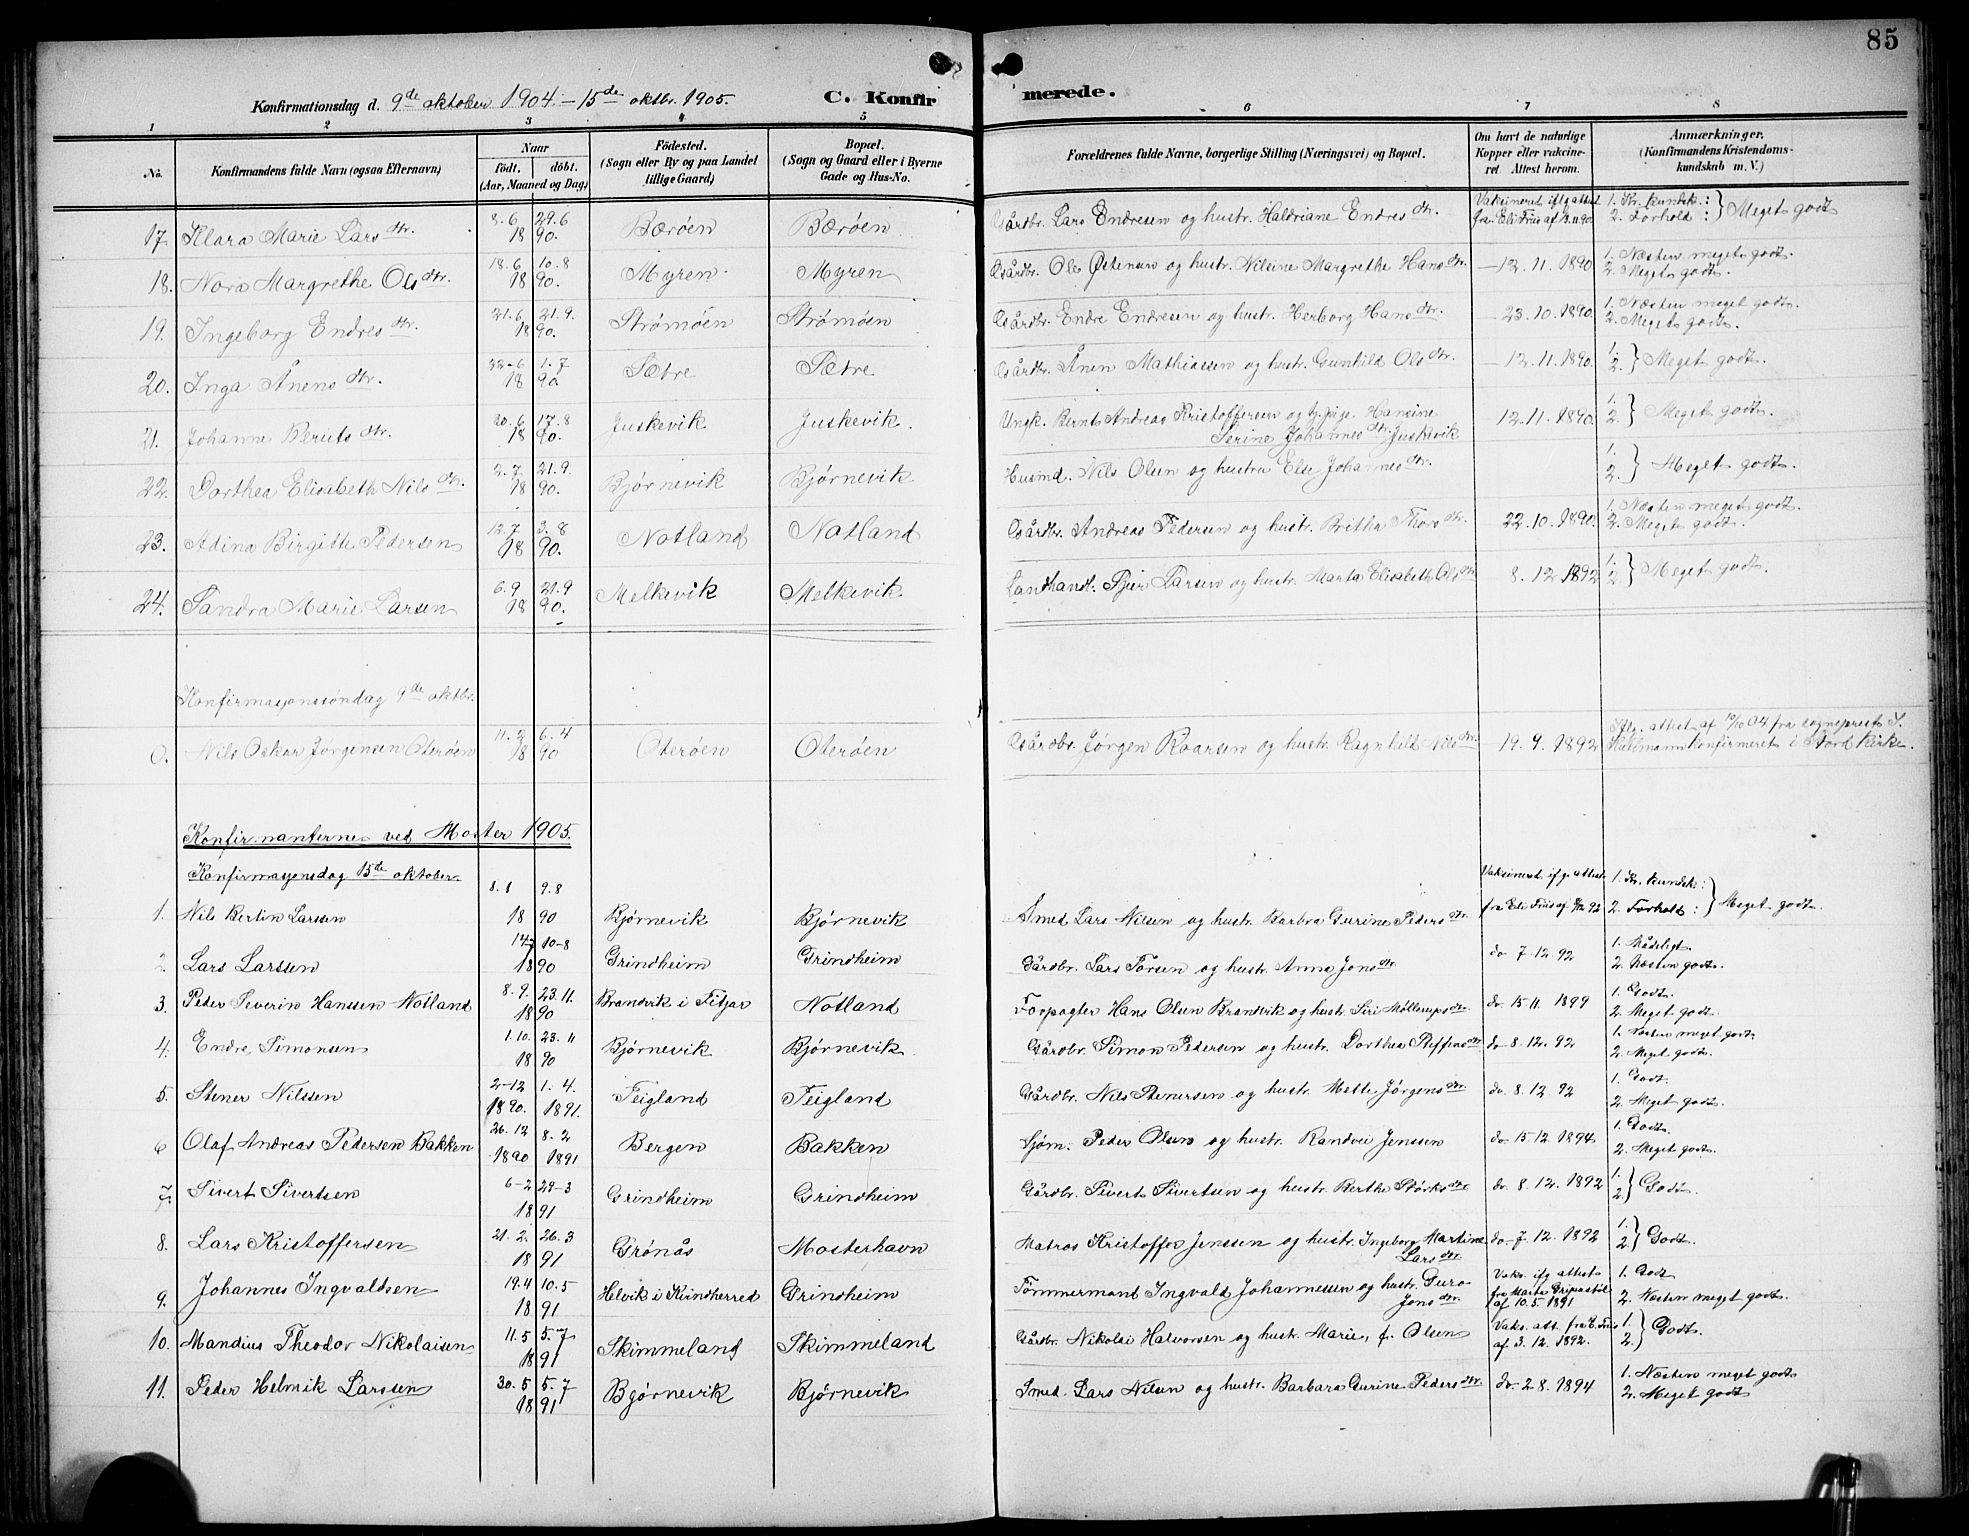 85
Konfirmationsdag d. 9de oktober 1904 – 15de oktbr. 1905. C. Konfirmerede.
1 2 3 4 5 6 7 8
No. Konfirmandens fulde Navn (ogsaa Efternavn) Naar født. døbt. (Aar, Maaned og Dag) Fødested. (Sogn eller By og paa Landet tillige Gaard) Bopæl. (Sogn og Gaard eller i Byerne Gade og Hus-No. Forældrenes fulde Navne, borgerlige Stilling (Næringsvei) og Bopæl. Om havt de naturlige Kopper eller vakcineret Attest herom. Anmærkninger. (Konfirmandens Kristendomskundskab m. V.)
17. Klara Marie Larsdtr. 8.6 29.6 1890. Bærøen Bærøen Gårdbr. Lars Endresen og hustr. Haldriane Endresdtr. Vaksineret iflg attest fra Eli Friis af 13.11.90. 1. Kr. kundsk: 2. Forhold: } Meget godt
18. Nora Margrethe Olsdtr. 18.6 10.8 1890. Myren Myren Gårdbr. Ole Østensen og hustr. Nilsine Margrethe Hansdtr. – 12.11.1890 1. Næsten meget godt. 2. Meget godt.
19. Ingeborg Endresdtr. 21.6 21.9. 1890. Strømøen Strømøen Gårdbr. Endre Endresen og hustr. Herborg Hansdtr. – 23.10.1890. 1. Næsten meget godt. 2. Meget godt.
20. Inga Ånensdtr. 22-6 1-7 1890. Sætre Sætre Gårdbr. Ånen Mathiassen og hustr. Gunhild Olsdtr. – 12.11.1890. 1. 2. } Meget godt.
21. Johanne Berntsdtr. 20.6 17.8 1890. Juskevik Juskevik. Ungk. Bernt Andreas Kristoffersen og tj.pige Hansine Serine Johannesdtr. Juskevik 12.11.1890. 1. 2. } Meget godt.
22. Dorthea Elisabeth Nilsdtr. 2.7 21.9. 1890. Bjørnevik Bjørnevik Husmd. Nils Olsen og hustru Else Johannesdtr. 1. 2. } Meget godt.
23. Adina Birgitte Pedersen 12.7 3.8 1890. Notland Notland Gårdbr. Andreas Pedersen og hustr. Britha Thorsdtr. – 22.10.1890. 1. Næsten meget godt. 2. Meget godt.
24. Sandra Marie Larsen 6.9 21.9 1890. Melkevik Melkevik Landhandl. Sjur Larsen og hustr. Marta Elisabeth Olsdtr 8.12.1892 1. 2. } Meget godt.
Konfirmasjonssøndag 9de oktbr.
0. Nils Oskar Jørgensen Oterøen 11.2 6.4 1890 Oterøen Oterøen Gårdbr. Jørgen Roarsen og hustr. Ragnhild Nilsdtr. – 19.9.1892 Iflg. attest af 10/10 04 fra sogneprest J. konfirmeret i Stord Kirke.
Konfirmanterne ved Moster 1905.
Konfirmasjonsdag 15de oktober.
1. Nils Bertin Larsen 8.1 9.8 1890 Bjørnevik Bjørnevik Smed Lars Nilsen og hustr. Barbra Gurine Pedersdtr. Vaksineret ifg attest fra Eli Friis af 8/12 92 1. Kr. kundsk: 2. Forhold: } Meget godt.
2. Lars Larssen 14/7 10-8 1890 Grindheim Grindheim Gårdbr. Lars Torsen og hustr. Anna Jonsdtr. do 7.12.92 1. Mådeligt. 2. Næsten godt.
3. Peder Severin Hanssen Notland 8.9. 23.11. 1890 Brandvik i Fitjar Notland Forpagter Hans Olsen Brandvik og hustr. Siri Møllerupsdtr do. 15.11.1899 1. Godt. 2. Meget godt.
4. Endre Simonsen 1.10. 23.11 1890 Bjørnevik Bjørnevik. Gårdbr. Simon Pedersen og hustr. Dorthea Steffensdtr do 8.12.92 1. Næsten meget godt 2. Meget godt.
5. Stener Nilssen 2-12 1890. 1.4. 1891. Feigland Feigland Gårdbr. Nils Stenersen og hustr. Mette Jørgensdtr. do. 8.12.92 1. Godt. 2. Meget godt.
6 Olaf Andreas Pedersen Bakken 26.12 1890 8.2 1891 Bergen Bakken Sjøm. Peder Olsen og hustr. Randvei Jenssen do. 15.12.1894 1. Godt. 2. Meget godt.
7. Sivert Sivertsen 6-2 29-3 1891 Grindheim Grindheim Gårdbr. Sivert Sivertsen og hustr. Berthe Størksdtr do. 8.12.1892 1. 2. } Godt.
8. Lars Kristoffersen 21.2. 26.3 1891 Grønås Mosterhavn Matros Kristoffer Jenssen og hustr. Ingeborg Martine Larsdtr. do 7.12.1892 1. 2 } Godt.
9. Johannes Ingvaldsen 19.4 10.5 1891 Helvik i Kvindherred Grindheim Tømmermand Ingvald Johannessen og hustr. Guro Jonsdtr. Vaks. ifg attest fra Marta Gripastøl af 10.5.1891 1. Godt 2. Næsten meget godt.
10. Mandius Theodor Nikolaisen 11.5 5.7 1891 Skimmeland Skimmeland Gårdbr. Nikolai Halvorsen og hustr. Marie, f. Olsen Vaks. att. fra E. Friis af 3.12.1892. 1. 2. } Godt.
11. Peder Helmik Larssen 30.5 5.7 1891 Bjørnevik Bjørnevik Smed. Lars Nilsen og hustr. Barbara Gurine Pedersdtr. do. 2.8.1894 1. Næsten meget godt 2. Meget godt